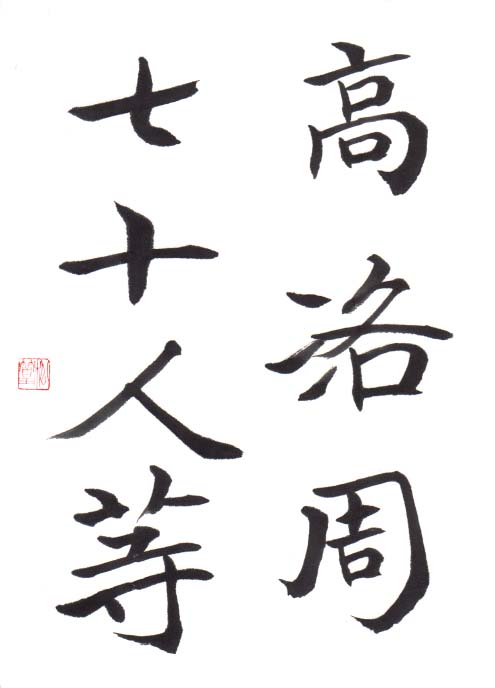 高洛周
七十人等